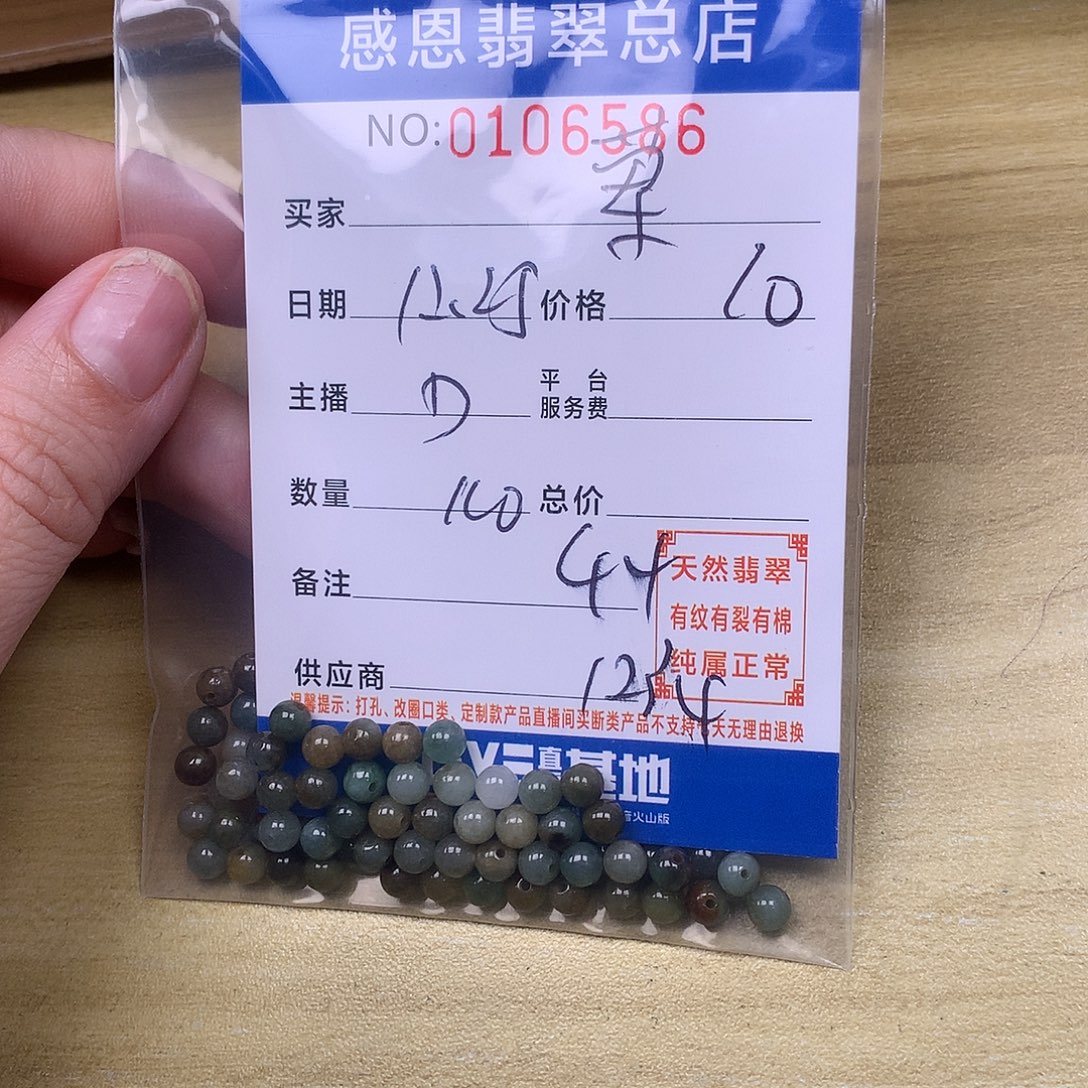 感恩翡翠总店
NO:0106586
买家
日期 12.29 价格 10
主播 D 平台服务费
数量 100 总价
备注 44
供应商 1254
天然翡翠
有纹有裂有棉
纯属正常
温馨提示：打孔、改圈口类、定制款产品直播间买断类产品不支持 天无理由退换
基地
音火山版